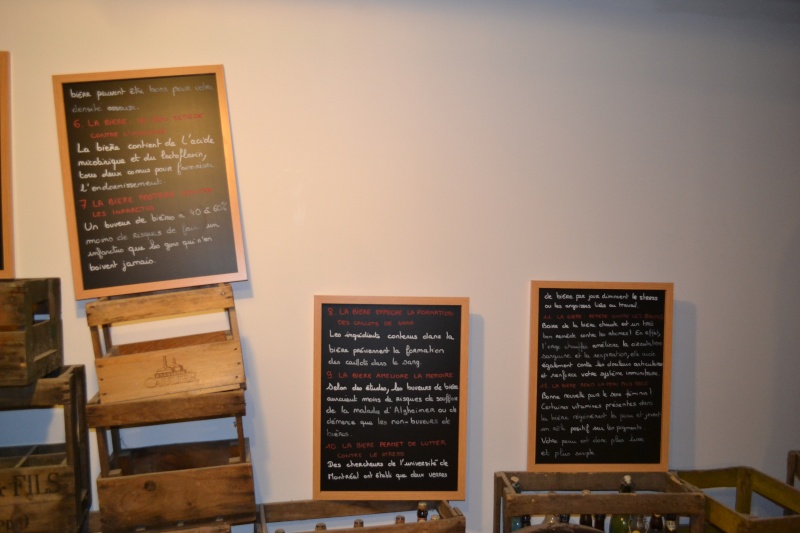 bière peuvent être bons pour votre
densité osseuse.
6. LA BIÈRE
CONTRE L'
La bière contient de l'acide
nicotinique et du lactoflavin,
tous deux connus pour favoriser
l'endormissement.
7 LA BIÈRE PROTÈGE
LES INFARCTUS
Un buveur de bières a 40 à 60%
moins de risques de faire un
infarctus que les gens qui n'en
boivent jamais.
8. LA BIÈRE EMPÊCHE LA FORMATION
DES CAILLOTS DE SANG
Les ingrédients contenus dans la
bière préviennent la formation
des caillots dans le sang.
9. LA BIÈRE AMÉLIORE LA MÉMOIRE
Selon des études, les buveurs de bière
auraient moins de risques de souffrir
de la maladie d'Alzheimer ou de
démence que les non-buveurs de
bières.
10. LA BIÈRE PERMET DE LUTTER
CONTRE LE STRESS
Des chercheurs de l'université de
Montréal ont établi que deux verres
de bière par jour diminuent le stress
ou les angoisses liées au travail.
11. LA BIÈRE
Boire de la bière chaude est un très
bon remède contre les rhumes! En effet,
l'orge chauffée améliore la circulation
sanguine et la respiration, elle
également contre les douleurs articulaires
et renforce votre système immunitaire.
12. LA BIÈRE REND LA PEAU PLUS
Bonne nouvelle pour le sexe féminin!
Certaines vitamines présentes dans
la bière régénèrent la peau et
un effet positif sur les pigments.
Votre peau est donc plus lisse
et plus souple.
FILS